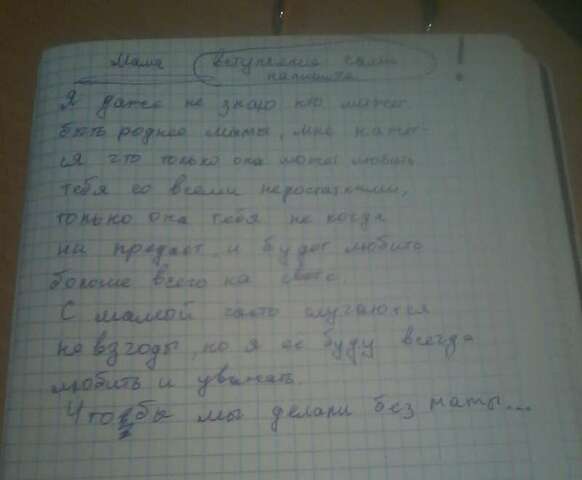 Мама вступление сами напишите !
Я даже не знаю кто может
быть роднее мамы, мне кажет-
ся что только она может любить
тебя со всеми недостатками,
только она тебя не когда
ни предаст, и будет любить
больше всего на свете.
С мамой часто случаются
не взгоды, но я её буду всегда
любить и уважать.
Что бы мы делали без мамы...